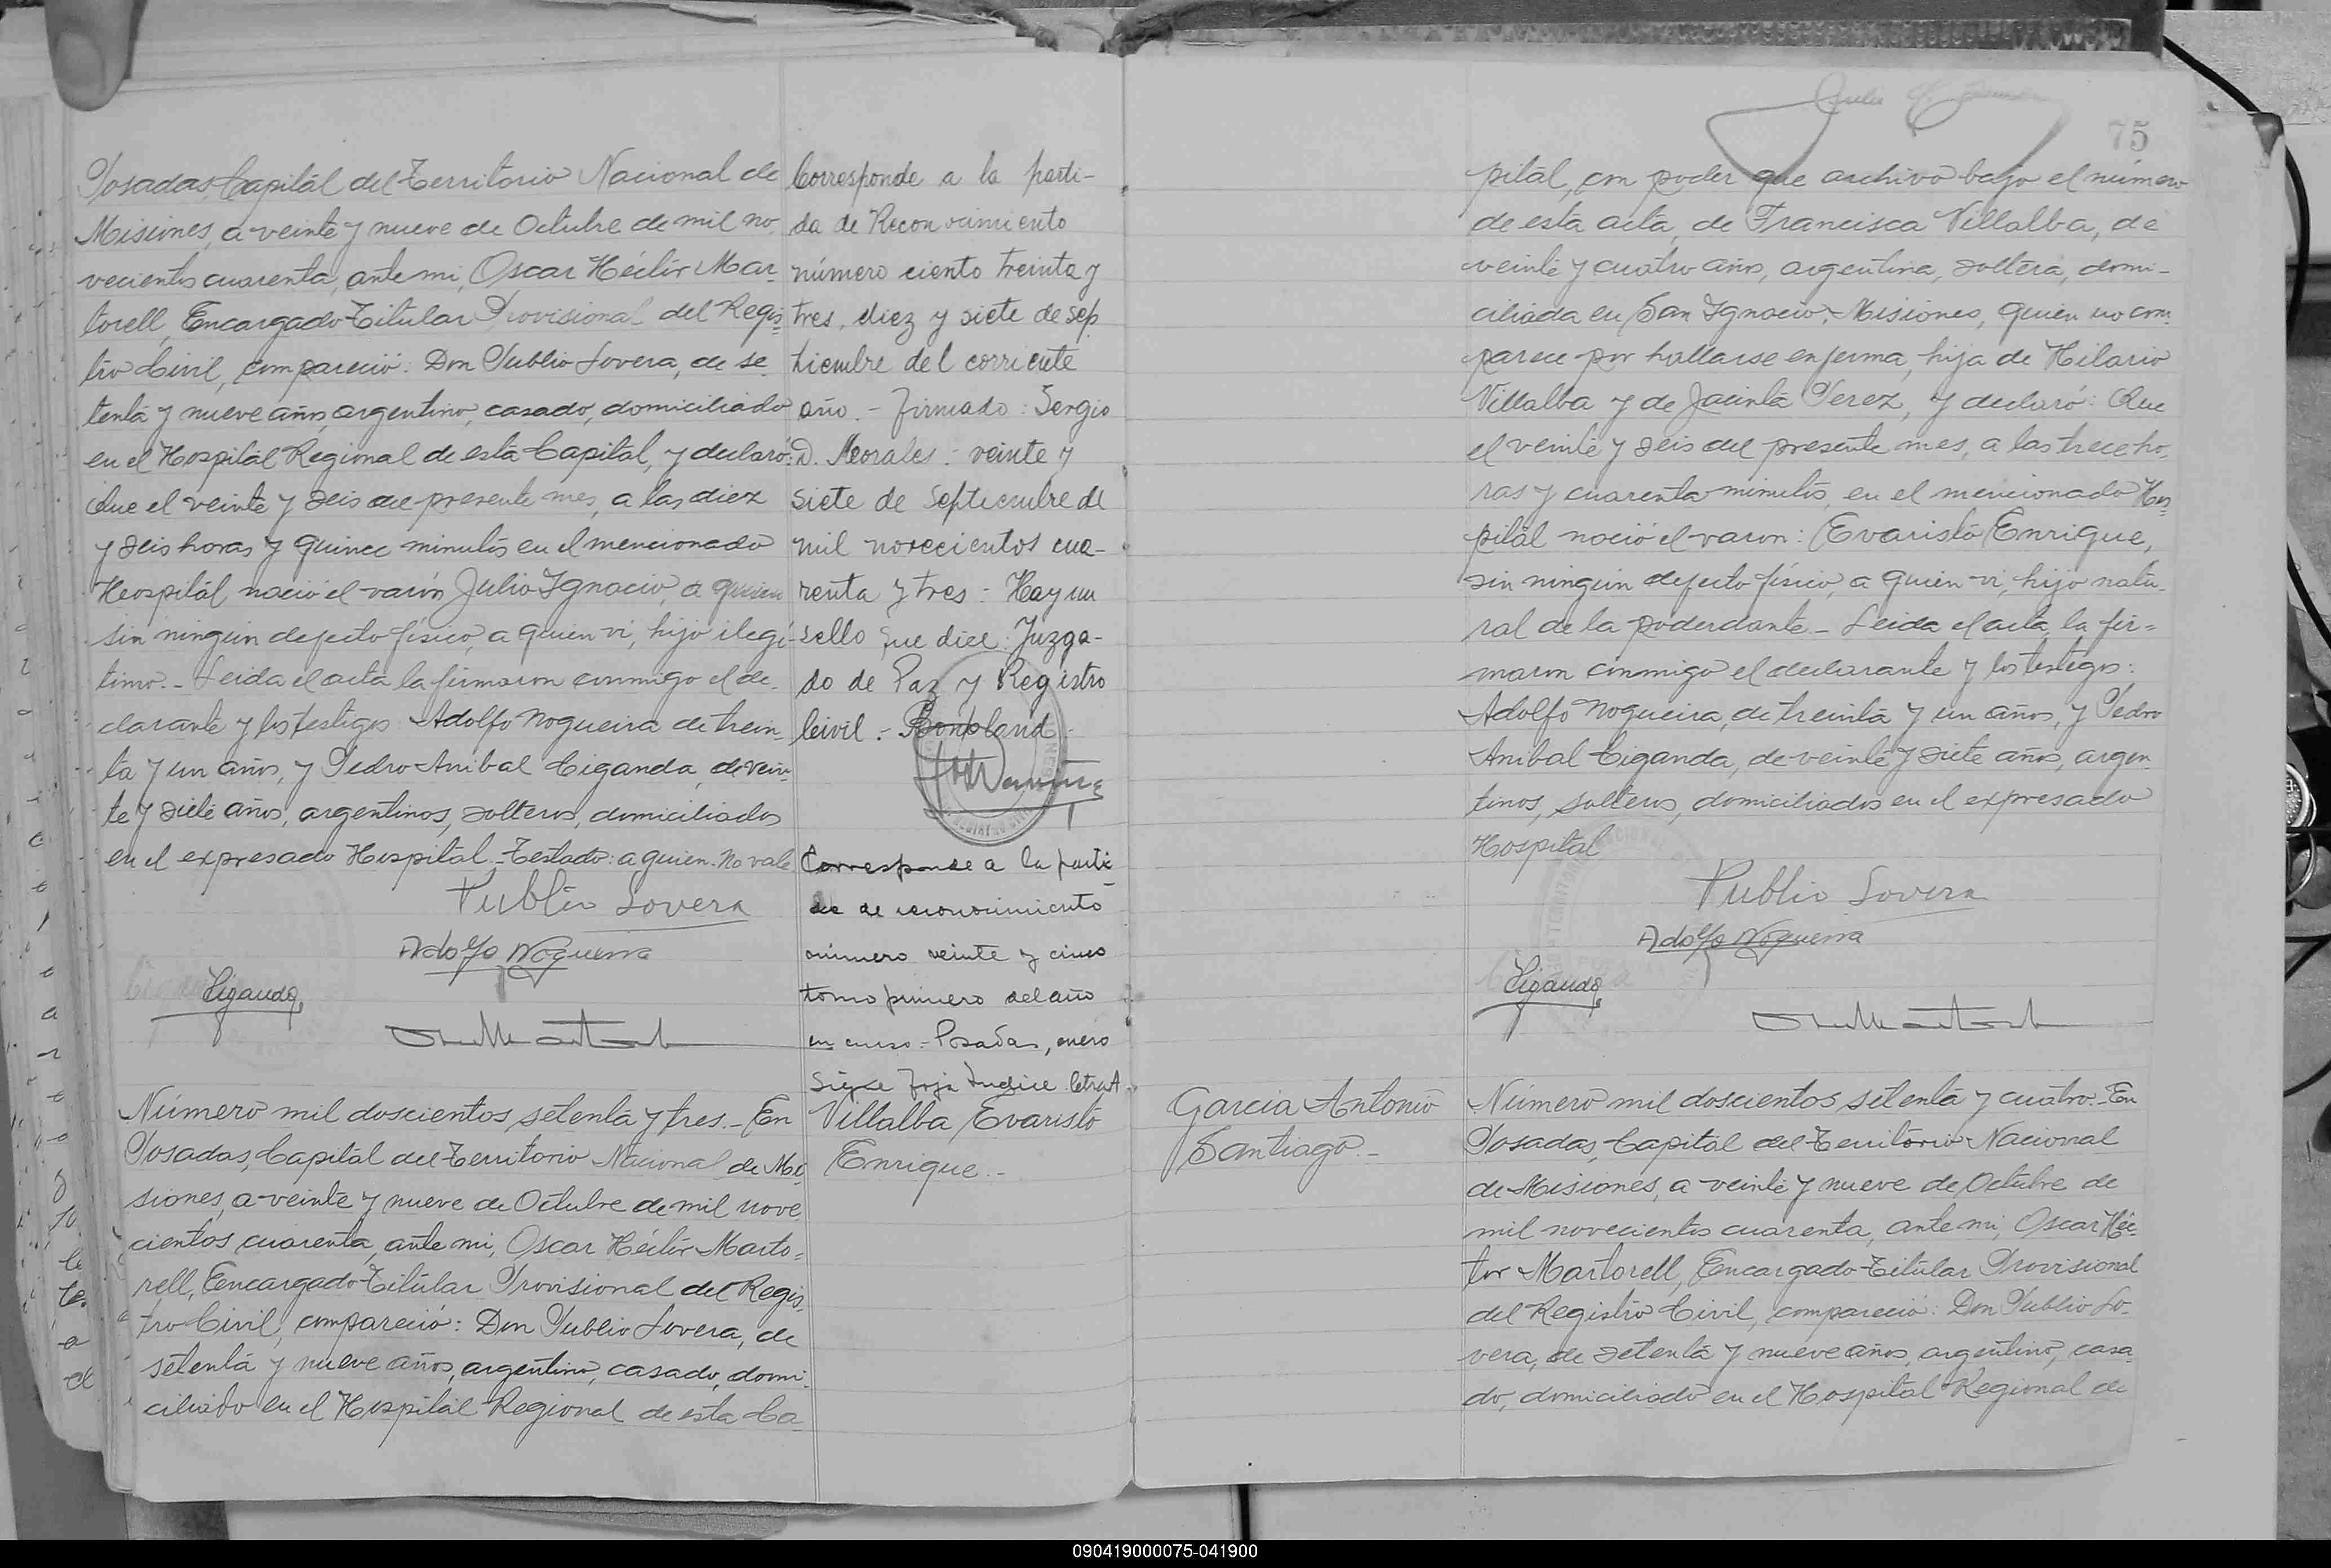 Posadas, Capital del Territorio Nacional de
Misiones, a veinte y nueve de Octubre de mil no-
vecientos cuarenta, ante mi, Oscar Héctor Mar-
torell, Encargado Titular Provisional del Regis-
tro Civil, compareció: Don Publio Lovera, de se-
tenta y nueve años, argentino, casado, domiciliado
en el Hospital Regional de esta Capital, y declaró:
Que el veinte y seis del presente mes, a las diez
y seis horas y quince minutos en el mencionado
Hospital nació el varón Julio Ignacio, a quien
sin ningún defecto físico, a quien vi, hijo ilegí-
timo.- Leida el acta la firmaron conmigo el de-
clarante y los testigos Adolfo Nogueira de trein-
ta y un años, y Pedro Anibal Ciganda, de vein-
te y siete años, argentinos, solteros, domiciliados
en el expresado Hospital.- Testado: a quien. No vale
Publio Lovera
Adolfo Nogueira
Ciganda
Número mil doscientos setenta y tres.- En
Posadas, Capital del Territorio Nacional de Mi-
siones, a veinte y nueve de Octubre de mil nove-
cientos cuarenta, ante mi, Oscar Héctor Marto-
rell, Encargado Titular Provisional del Regis-
tro Civil, compareció: Don Publio Lovera, de
setenta y nueve años, argentino, casado, domi-
ciliado en el Hospital Regional de esta Ca-
Corresponde a la parti-
da de Reconocimiento
número ciento treinta y
tres, diez y siete de sep
tiembre del corriente
año.- Firmado: Sergio
D. Morales.- veinte y
siete de Septiembre de
mil novecientos cua-
renta y tres - Hay un
sello que dice: Juzga-
do de Paz y Registro
Civil.- Bonpland.-
Corresponde a la parti
da de reconocimiento
número veinte y cinco
tomo primero del año
en curso - Posadas, enero
Sigue foja Indice letra A
Villalba Evaristo
Enrique.-
75
pital, con poder que archivo bajo el número
de esta acta, de Francisca Villalba, de
veinte y cuatro años, argentina, soltera, domi-
ciliada en San Ignacio, Misiones, quien no com-
parece por hallarse enferma, hija de Hilario
Villalba y de Jacinta Perez, y declaró: Que
el veinte y seis del presente mes, a las trece ho-
ras y cuarenta minutos, en el mencionado Hos-
pital nació el varon: Evaristo Enrique,
sin ningún defecto físico, a quien vi, hijo natu-
ral de la poderdante - Leida el acta la fir-
maron conmigo el declarante y los testigos:
Adolfo Nogueira, de treinta y un años, y Pedro
Anibal Ciganda, de veinte y siete años, argen-
tinos, solteros, domiciliados en el expresado
Hospital
Publio Lovera
Adolfo Nogueira
Ciganda
Garcia Antonio
Santiago.-
Número mil doscientos setenta y cuatro.- En
Posadas, Capital del Territorio Nacional
de Misiones, a veinte y nueve de Octubre de
mil novecientos cuarenta, ante mi, Oscar Héc-
tor Martorell, Encargado Titular Provisional
del Registro Civil, compareció: Don Publio Lo-
vera, de setenta y nueve años, argentino, casa-
do, domiciliado en el Hospital Regional de
090419000075-041900